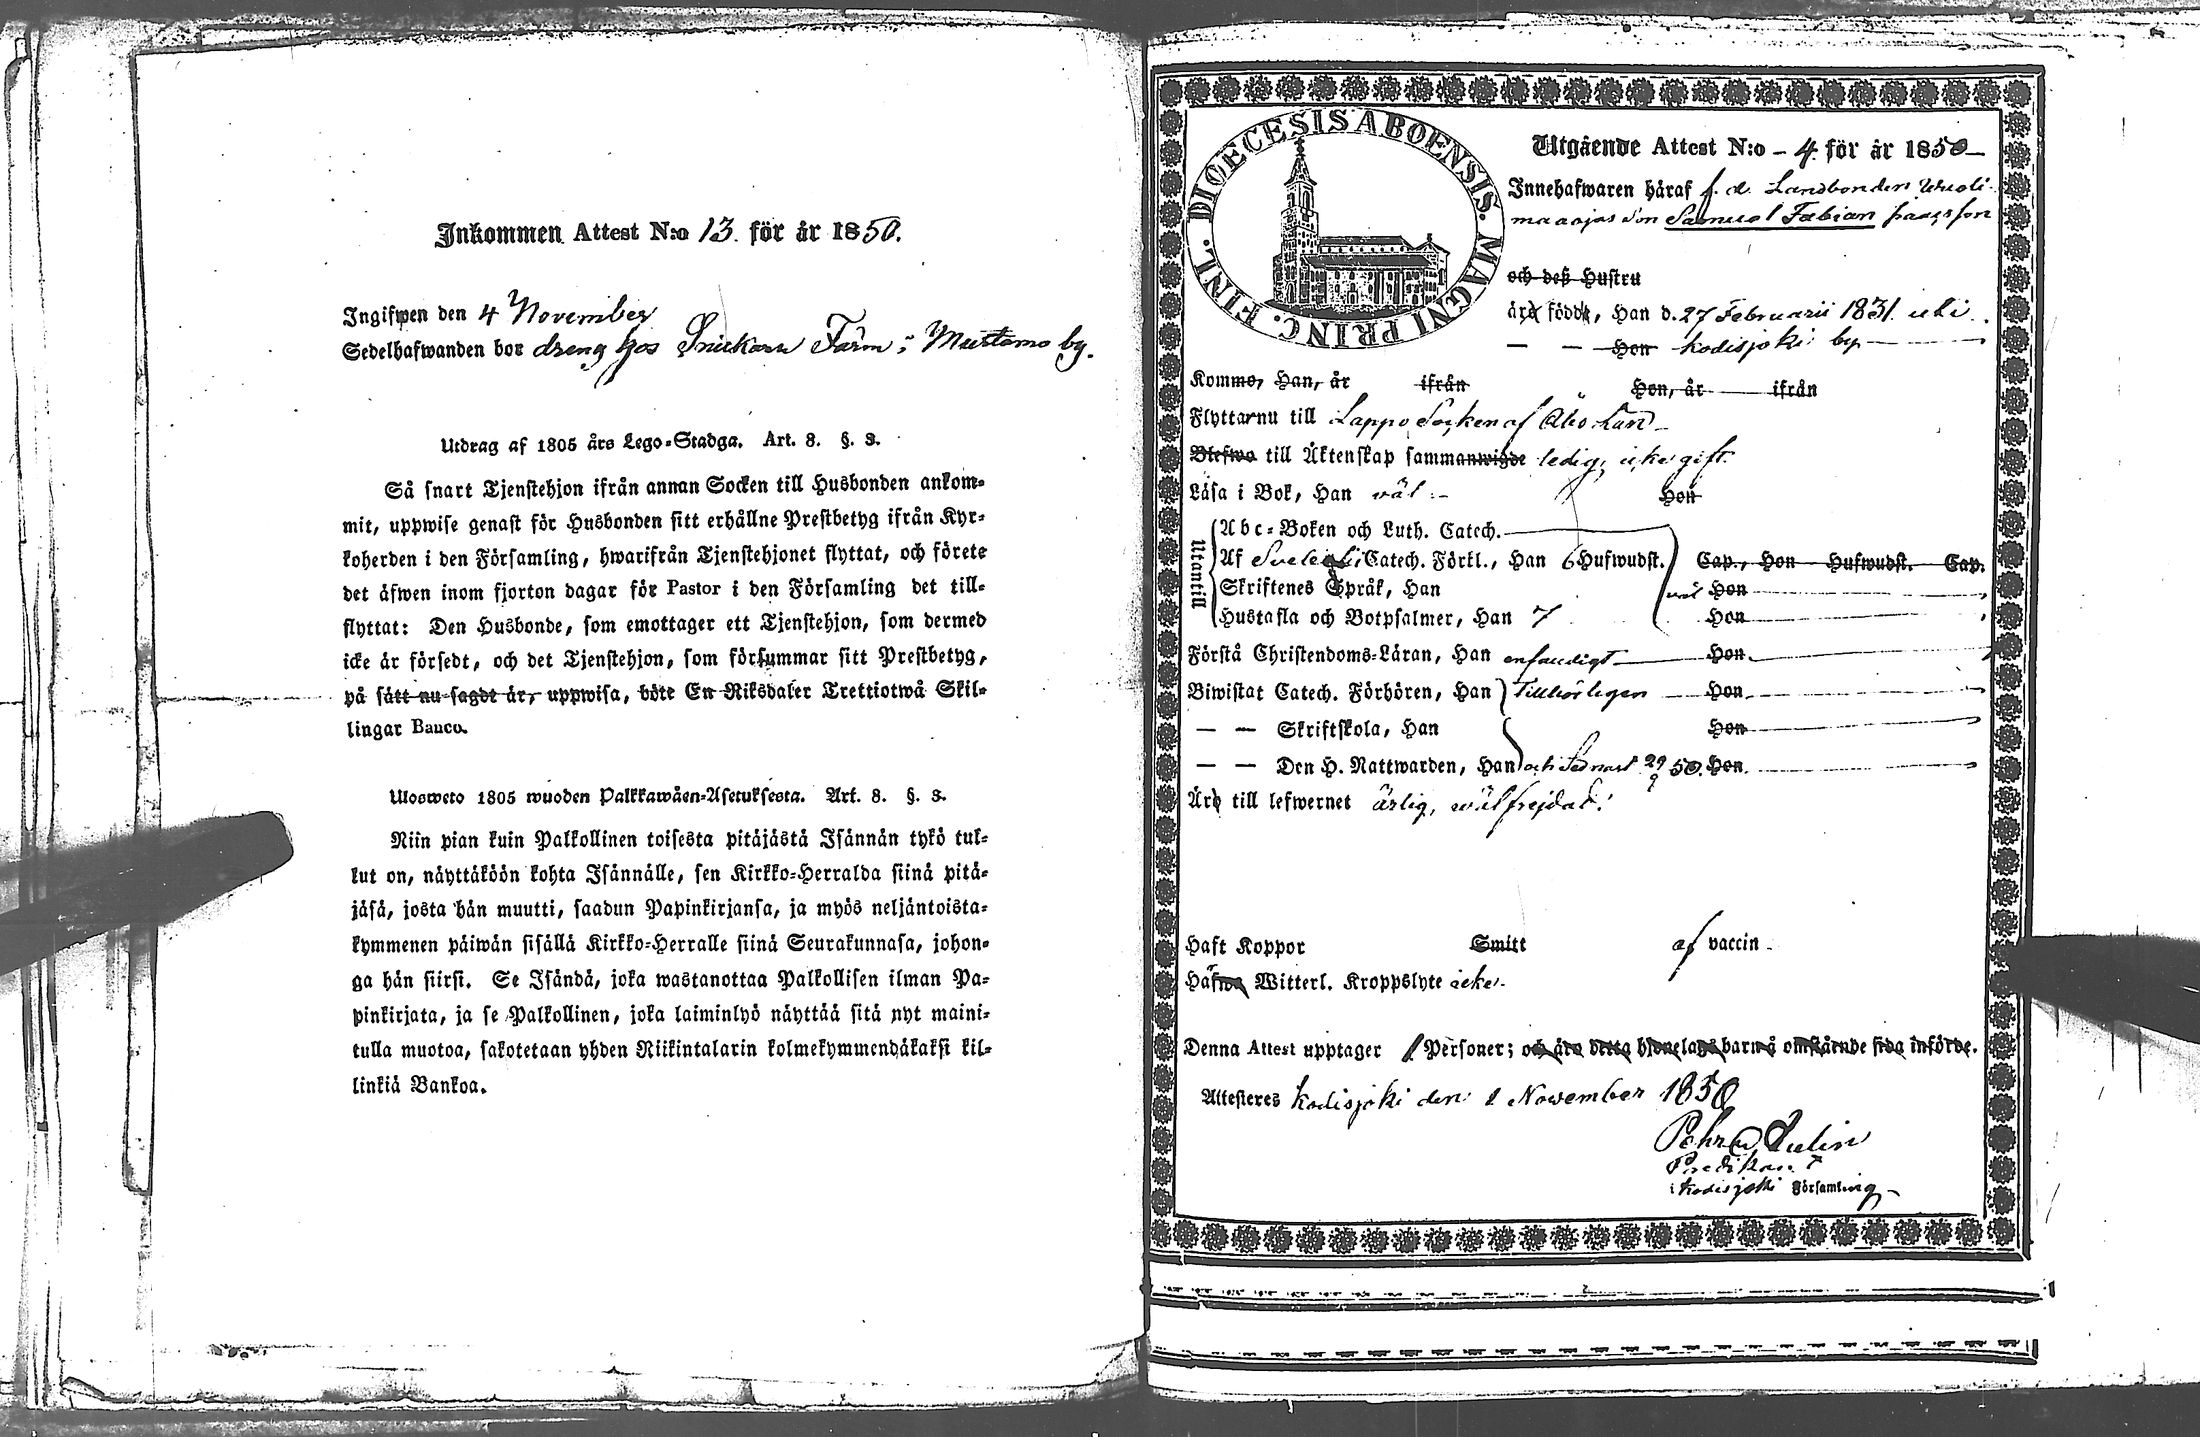 Inkommen Attest N:o 13 för år 1850.
Ingifwen den 4 November
Sedelhafwanden bor dreng hos Snickare Färm i Mustamo by.
Utdrag af 1805 års Lego-Stadga. Art. 8. §. 3.
Så snart Tjenstehjon ifrån annan Socken till Husbonden ankom-
mit, uppwise genast för Husbonden sitt erhållne Prestbetyg ifrån Kyr-
koherden i den Församling, hwarifrån Tjenstehjonet flyttat, och förete
det äfwen inom fjorton dagar för Pastor i den Församling det till-
flyttat: Den Husbonde, som emottager ett Tjenstehjon, som dermed
icke är försedt, och det Tjenstehjon, som försummar sitt Prestbetyg,
på sått nu sagdt är, uppwisa, böte En Riksdaler Trettiotwå Skil-
lingar Banco.
Ulosweto 1805 wuoden Palkkawäen-Asetuksesta. Art. 8. §. 3.
Niin pian kuin Palkollinen toisesta pitäjästä Isännän tykö tul-
lut on, näyttäköön kohta Isännälle, sen Kirkko-Herralda siinä pitä-
jäsä, josta hän muutti, saadun Papinkirjansa, ja myös neljäntoista-
kymmenen päiwän sisällä Kirkko-Herralle siinä Seurakunnasa, johon-
ga hän siirsi. Se Isändä, joka wastanottaa Palkollisen ilman Pa-
pinkirjata, ja se Palkollinen, joka laiminlyö näyttää sitä nyt maini-
tulla muotoa, sakotetaan yhden Riikintalarin kolmekymmendäkaksi kil-
linkiä Bankoa.
DIOECESIS ABOENSIS. MAGNI PRINC. FINL.
Utgående Attest N:o 4 för år 1850
Innehafwaren häraf f. d. Landbonden
son Samuel Fabian Isaacsson
och deß Hustru
äro födde, Han d. 27 Februarii 1831 uti
— — Hon Kodisjoki by
Komne, Han, år ifrån Hon, år ifrån
Flyttar nu till Lappo Socken af Åbo Län
Blefwo till Äktenskap sammanwigde ledig, icke gift.
Läsa i Bok, Han wäl Hon
Utantill
Abc-Boken och Luth. Catech.
Af Svebelii Catech. Förkl., Han 6 Hufwudst. Cap., Hon Hufwudst. Cap.
Skriftenes Språk, Han wäl Hon
Hustafla och Botpsalmer, Han 7 Hon
Förstå Christendoms-Läran, Han enfaldigt Hon
Biwistat Catech. Förhören, Han Tillbörligen Hon
— — Skriftskola, Han Hon
— — Den H. Nattwarden, Han och Sednast 29/9 50. Hon
Äro till lefwernet ärlig, wälfrejdad.
Haft Koppor Smitt af vaccin
Häfwa Witterl. Kroppslyte icke.
Denna Attest upptager 1 Personer; och äro detta hjonelags barn å omstående sida införde.
Attesteres Kodisjoki den 1 November 1850
Predikant
i Kodisjoki Församling